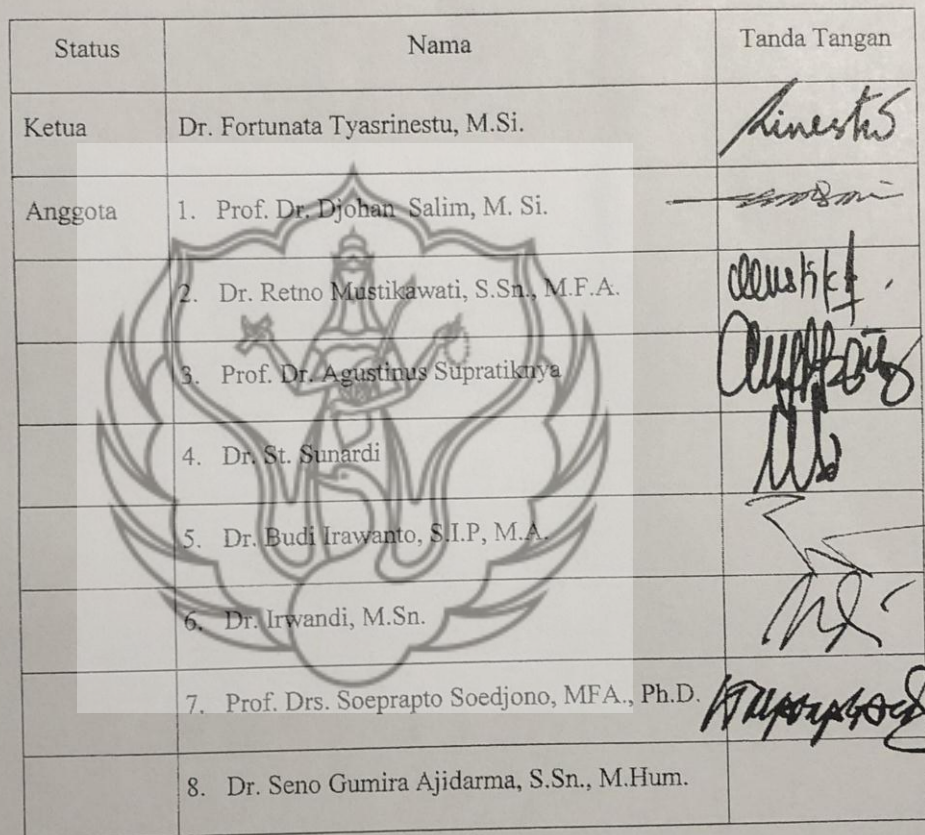 Status Nama Tanda Tangan
Ketua Dr. Fortunata Tyasrinestu, M.Si.
Anggota 1. Prof. Dr. Djohan Salim, M. Si.
2. Dr. Retno Mustikawati, S.Sn., M.F.A.
3. Prof. Dr. Agustinus Supratiknya
4. Dr. St. Sunardi
5. Dr. Budi Irawanto, S.I.P, M.A.
6. Dr. Irwandi, M.Sn.
7. Prof. Drs. Soeprapto Soedjono, MFA., Ph.D.
8. Dr. Seno Gumira Ajidarma, S.Sn., M.Hum.